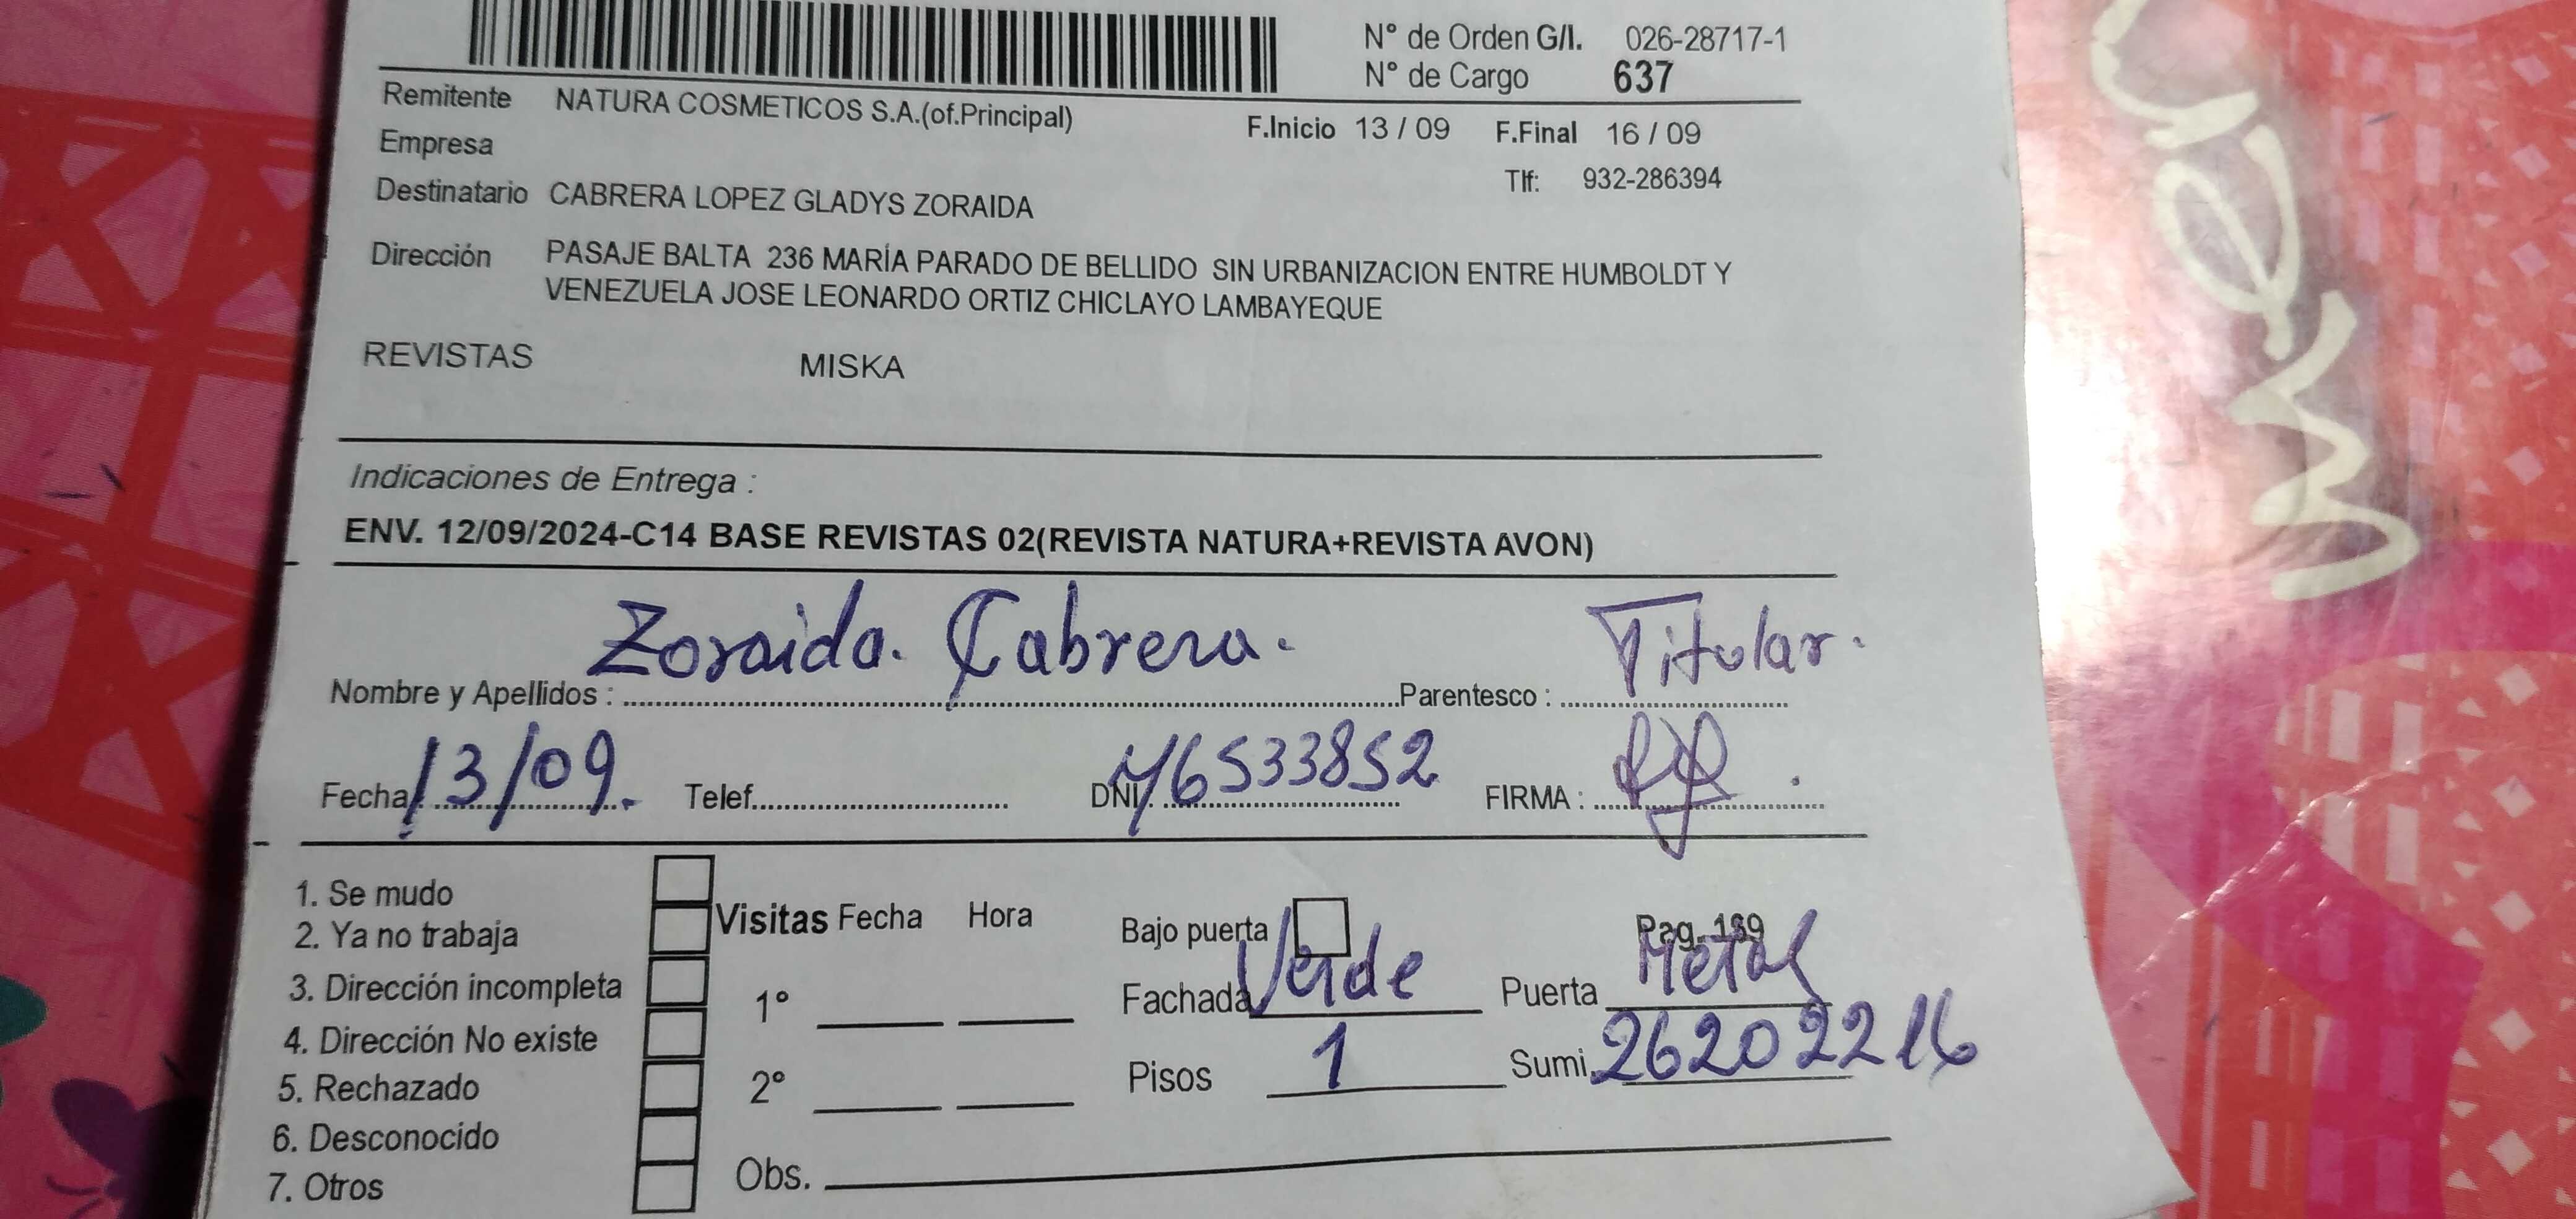 N° de Orden G/I. 026-28717-1
N° de Cargo 637
Remitente NATURA COSMETICOS S.A.(of.Principal)
F.Inicio 13 / 09 F.Final 16 / 09
Empresa
Tlf: 932-286394
Destinatario CABRERA LOPEZ GLADYS ZORAIDA
Dirección PASAJE BALTA 236 MARÍA PARADO DE BELLIDO SIN URBANIZACION ENTRE HUMBOLDT Y
VENEZUELA JOSE LEONARDO ORTIZ CHICLAYO LAMBAYEQUE
REVISTAS MISKA
Indicaciones de Entrega :
ENV. 12/09/2024-C14 BASE REVISTAS 02(REVISTA NATURA+REVISTA AVON)
Nombre y Apellidos : Zoraida. Cabrera. Parentesco : Titular.
Fecha 13/09. Telef. DNI. 46533852 FIRMA :
1. Se mudo
2. Ya no trabaja
3. Dirección incompleta
4. Dirección No existe
5. Rechazado
6. Desconocido
7. Otros
Visitas Fecha Hora
1°
2°
Obs.
Bajo puerta Pag. 159
Fachada Verde Puerta Metal
Pisos 1 Sumi. 26202216